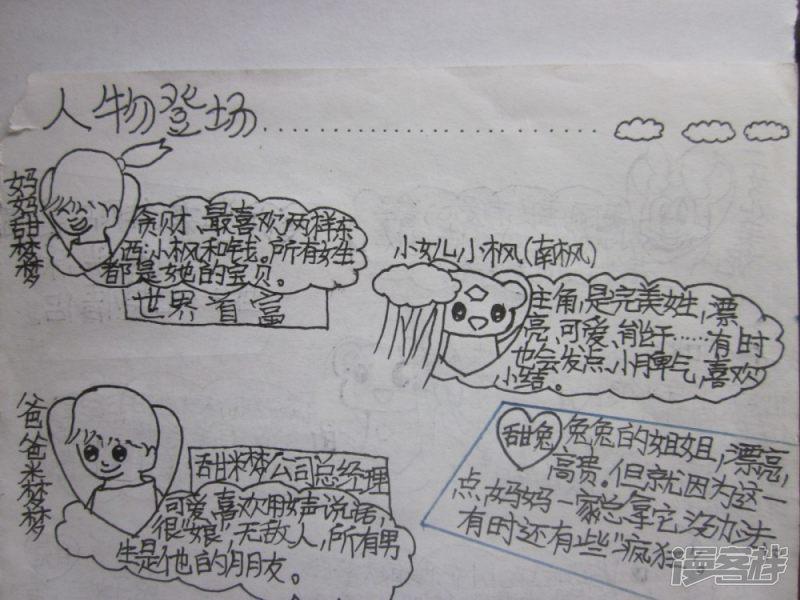 人物登场
妈妈甜梦梦
贪财、最喜欢两样东
西:小枫和钱。所有女生
都是她的宝贝。
世界首富
小女儿小枫(南枫)
主角,是完美姓,漂
亮、可爱、能干……有时
也会发点、小月脾气,喜欢
小结。
爸爸米梦梦
甜米梦公司总经理
可爱,喜欢用女声说话,
很"娘",无敌人,所有男
生是他的朋友。
甜兔
兔兔的姐姐,漂亮,
高贵。但就因为这一
点,妈妈一家总拿它没办法
有时还有些"疯狂
漫客栈